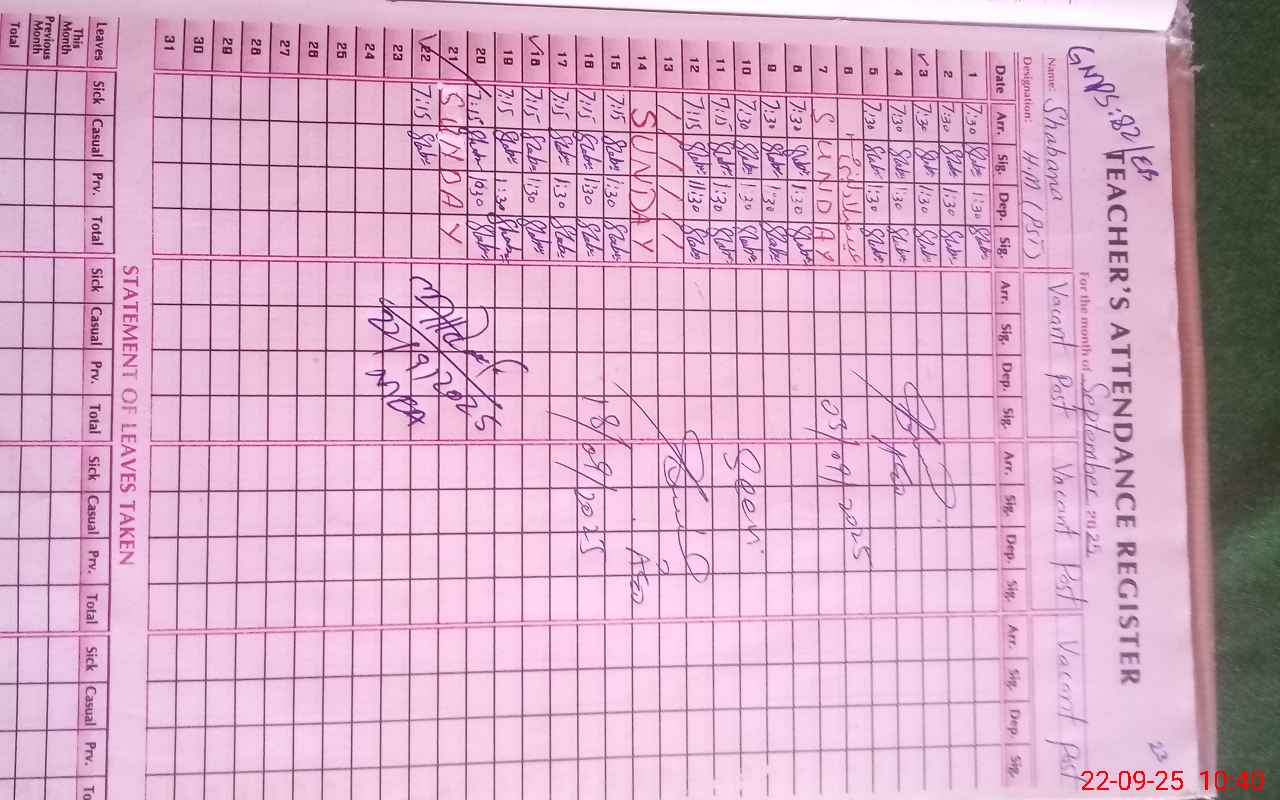 GMPS:82/EB
TEACHER'S ATTENDANCE REGISTER
23
For the month of September 2025
Name: Shabana Vacant Post Vacant Post Vacant Post
Designation: H.M (PST)
Date Arr. Sig. Dep. Sig. Arr. Sig. Dep. Sig. Arr. Sig. Dep. Sig. Arr. Sig. Dep. Sig.
1 7:30 1:30
2 7:30 1:30
3 7:30 1:30
4 7:30 1:30
5 7:30 1:30
6
7 SUNDAY
8 7:30 1:30
9 7:30 1:30
10 7:30 1:30
11 7:15 1:30
12 7:15 11:30
13
14 SUNDAY
15 7:15 1:30
16 7:15 1:30
17 7:15 1:30
18 7:15 1:30
19 7:15 1:30
20 7:15 1:30
21 SUNDAY
22 7:15
23
24
25
26
27
28
29
30
31
ASEO
03/09/2025
Seen
ASEO
18/09/2025
22/9/2025
STATEMENT OF LEAVES TAKEN
Leaves Sick Casual Prv. Total Sick Casual Prv. Total Sick Casual Prv. Total Sick Casual Prv. To
This Month
Previous Month
Total
22-09-25 10:40